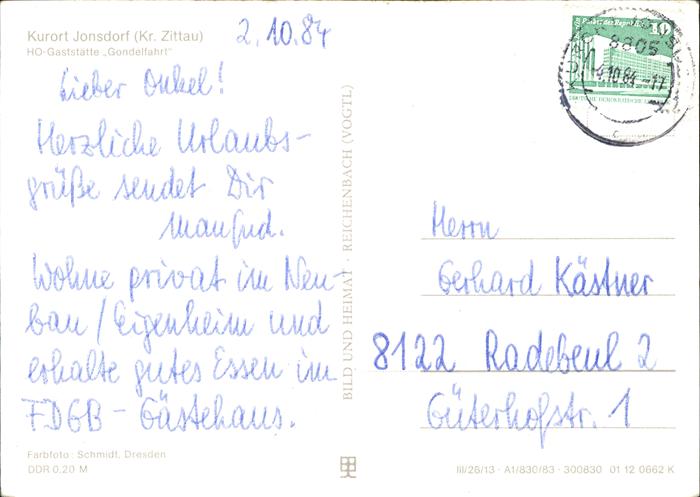 Kurort Jonsdorf (Kr. Zittau)
HO-Gaststätte „Gondelfahrt"
2.10.84
Lieber Onkel!
Herzliche Urlaubs-
grüße sendet Dir
Manfred.
Wohne privat im Neu-
bau / Eigenheim und
erhalte gutes Essen im
FDGB - Gästehaus.
Farbfoto: Schmidt, Dresden
DDR 0,20 M
BILD UND HEIMAT · REICHENBACH (VOGTL)
10
8805
4.10.84-17
Herrn
Gerhard Kästner
8122 Radebeul 2
Güterhofstr. 1
III/26/13 · A1/830/83 · 300830 01 12 0662 K